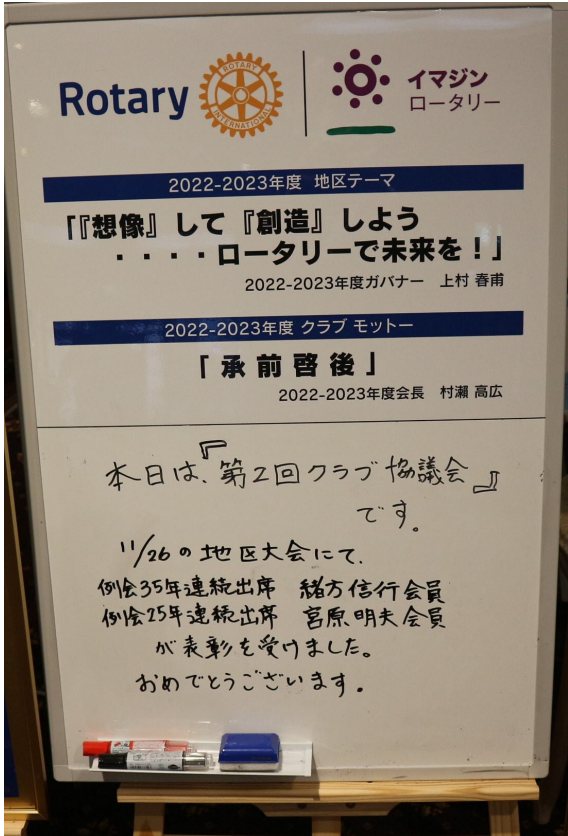 Rotary
ROTARY
INTERNATIONAL
イマジン
ロータリー
2022-2023年度 地区テーマ
「『想像』して『創造』しよう
・・・・ロータリーで未来を！」
2022-2023年度ガバナー 上村 春甫
2022-2023年度 クラブ モットー
「承前啓後」
2022-2023年度会長 村瀬 高広
本日は、『第2回クラブ協議会』
です。
11/26の地区大会にて、
例会35年連続出席 緒方信行会員
例会25年連続出席 宮原明夫会員
が表彰を受けました。
おめでとうございます。